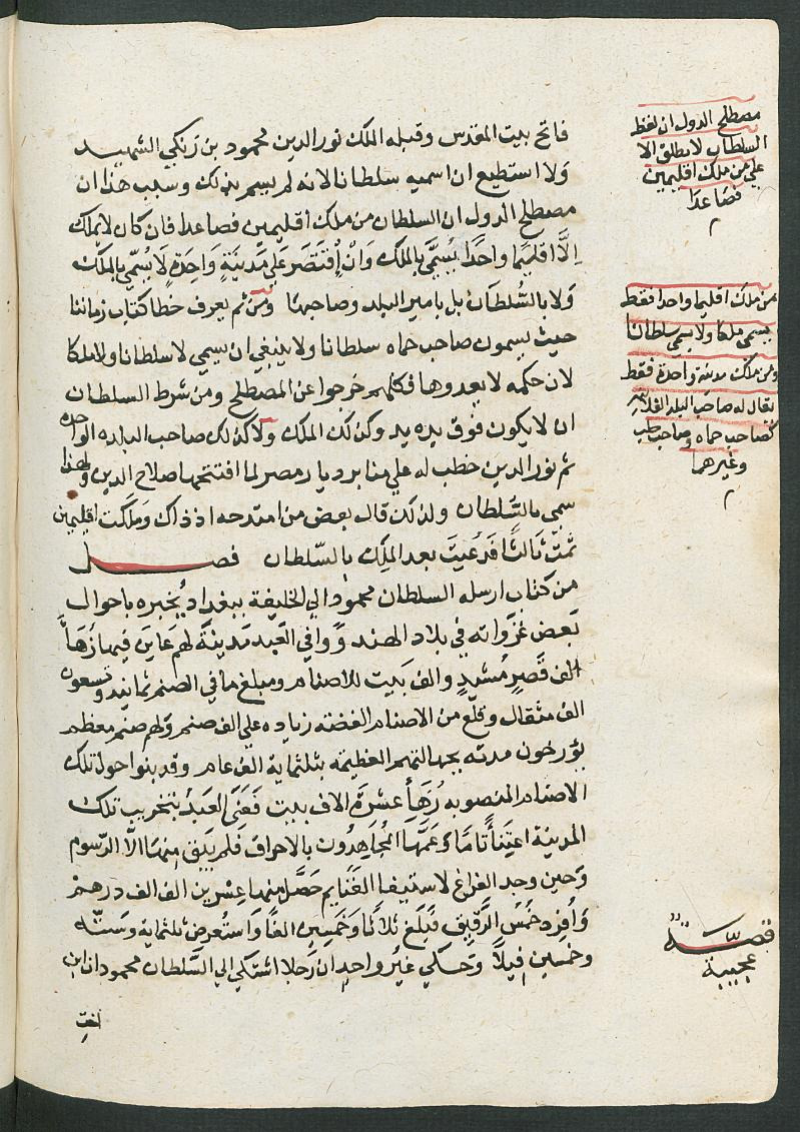 فاتح بيت المقدس وقبله الملك نور الدين محمود بن زنكي الشهيد
ولا استطيع ان اسميه سلطانا لانه لم يسم بذلك وسبب هذا ان
مصطلح الدول ان السلطان من ملك أقليمين فصاعدا فان كان لا يملك
الَّا اقليمًا واحدًا يُسَمَّي بالملك وَانْ اِقتَصَر عَلي مَدينَةٍ وَاحِدَةٍ لَا يُسَمّي بالملك
ولا بالسُّلطان بل بامير البلد وصاحبها ومن ثم يعرف خطا كتاب زماننا
حيث يسمون صاحب حماه سلطانا ولا ينبغي ان يسمي لا سلطانا ولا ملكا
لان حكمه لا يعدوها فكانهم خرجوا عن المصطلح ومن شرط السلطان
ان لا يكون فوق يده يد وكذلك الملك ولا كذلك صاحب البلده الواحده
ثم نور الدين خطب له علي منابر ديار مصر لما افتتحها صلاح الدين ولهذا
سمي بالسُّلطان ولذلك قال بعض من امتدحه اذ ذاك وَملكت اقليمين
ثمتَّ ثالثًا فَدُعيتَ بعد الملِك بالسّلطان فصل
من كتاب ارسله السلطان محمود الي الخليفة ببغداد يُخبره باحوال
بَعض غزَواته في بلاد الهند وَوافي العَبد مَدينةً لهم عَاين فيها زُهَآ
الف قَصرٍ مُشيدٍ والف بَيت للاصنام ومبلغ ما في الصنم ثمانية وتسعون
الف مثقال وقلع من الاصنام الفضه زياده علي الف صنم ولهم صنم معظم
يؤرخون مدته بجهالتهم العظيمه بثلثماية الف عام وقد بنوا حول تلك
الاصنام المنصوبه زُهَآ عشرة الاف بيت فَعَني العَبدُ بتخريب تلك
المدينة اعتنآً تامًا وَعَمَّهَا المجَاهِدُون بالاحراق فَلم يَبق مِنهَا الَّا الرّسوم
وَحين وجد الفراغ لاستيفا الغَنَايم حَصَّل منها عِشرين الف الف درهم
وَاُفرِد خُمُس الرَّقيق فَبَلغ ثلاثًا وَخَمسين الفًا وَاستُعرض ثلثماية وستّه
وخمسين فيلًا وَحكي غيرُ واحدٍ ان رَجلا اشتكي الي السَّلطان محمود ان ابن
اخت
مصطلح الدول ان لفظ
السلطان لا يطلق الا
علي من ملك اقليمين
فصاعدا
من ملك اقليما واحدا فقط
يسمي ملكا ولا يسمي سلطانا
ومن ملك مدينة واحدة فقط
يقال له صاحب البلد الفلانيه
كصاحب حماه وصاحب حلب
وغيرهما
قصّة
عجيبة